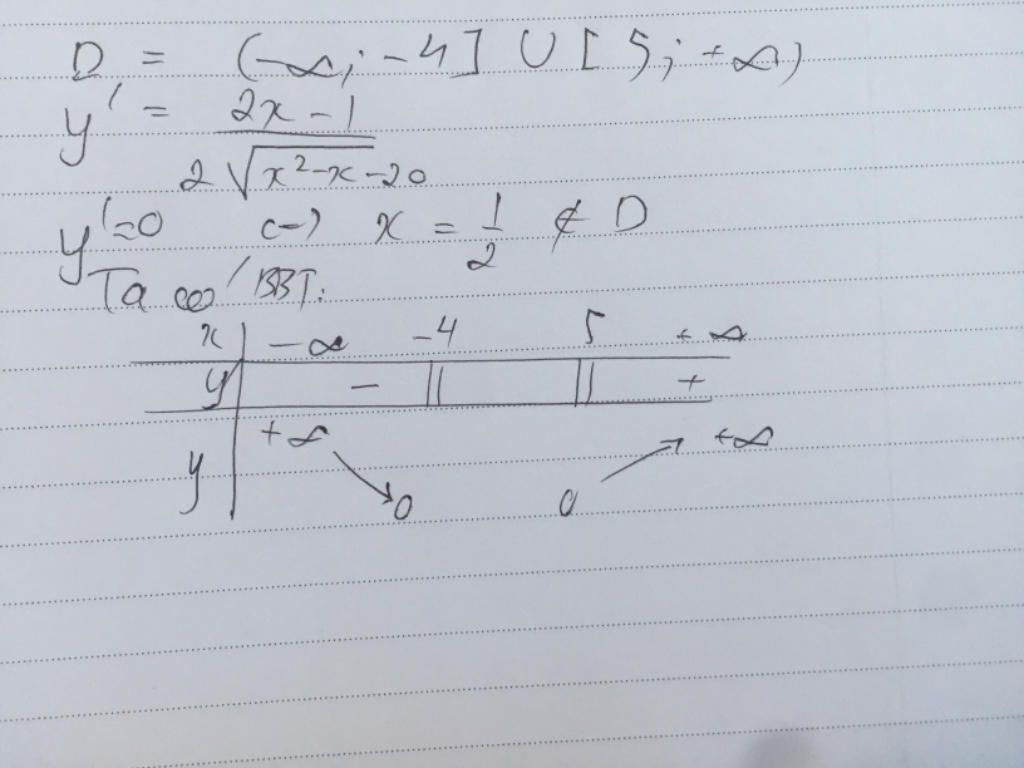 D = (-∞; -4] ∪ [5; +∞)
y' = \frac{2x-1}{2\sqrt{x^2-x-20}}
y'=0 <-> x = \frac{1}{2} ∉ D
Ta có BBT:
x | -∞ -4 5 +∞
y' | - || || +
y | +∞ ↘ 0 0 ↗ +∞